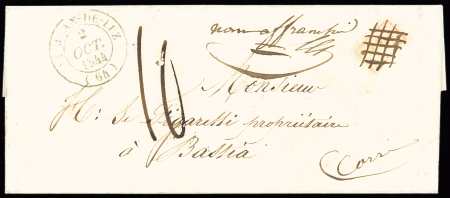 ST-JEAN-DE-LUZ
2
OCT.
1844
(64)
non affranchi
16
Monsieur
Mr. de Figaretti propriétaire
à Bastia
Corse